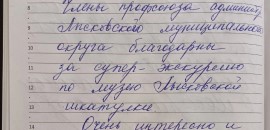 Члены профсоюза админист
Лысковского муниципальног
округа благодарны
за супер-экскурсию
по музею Лысковской
шкатулке
Очень интересно и